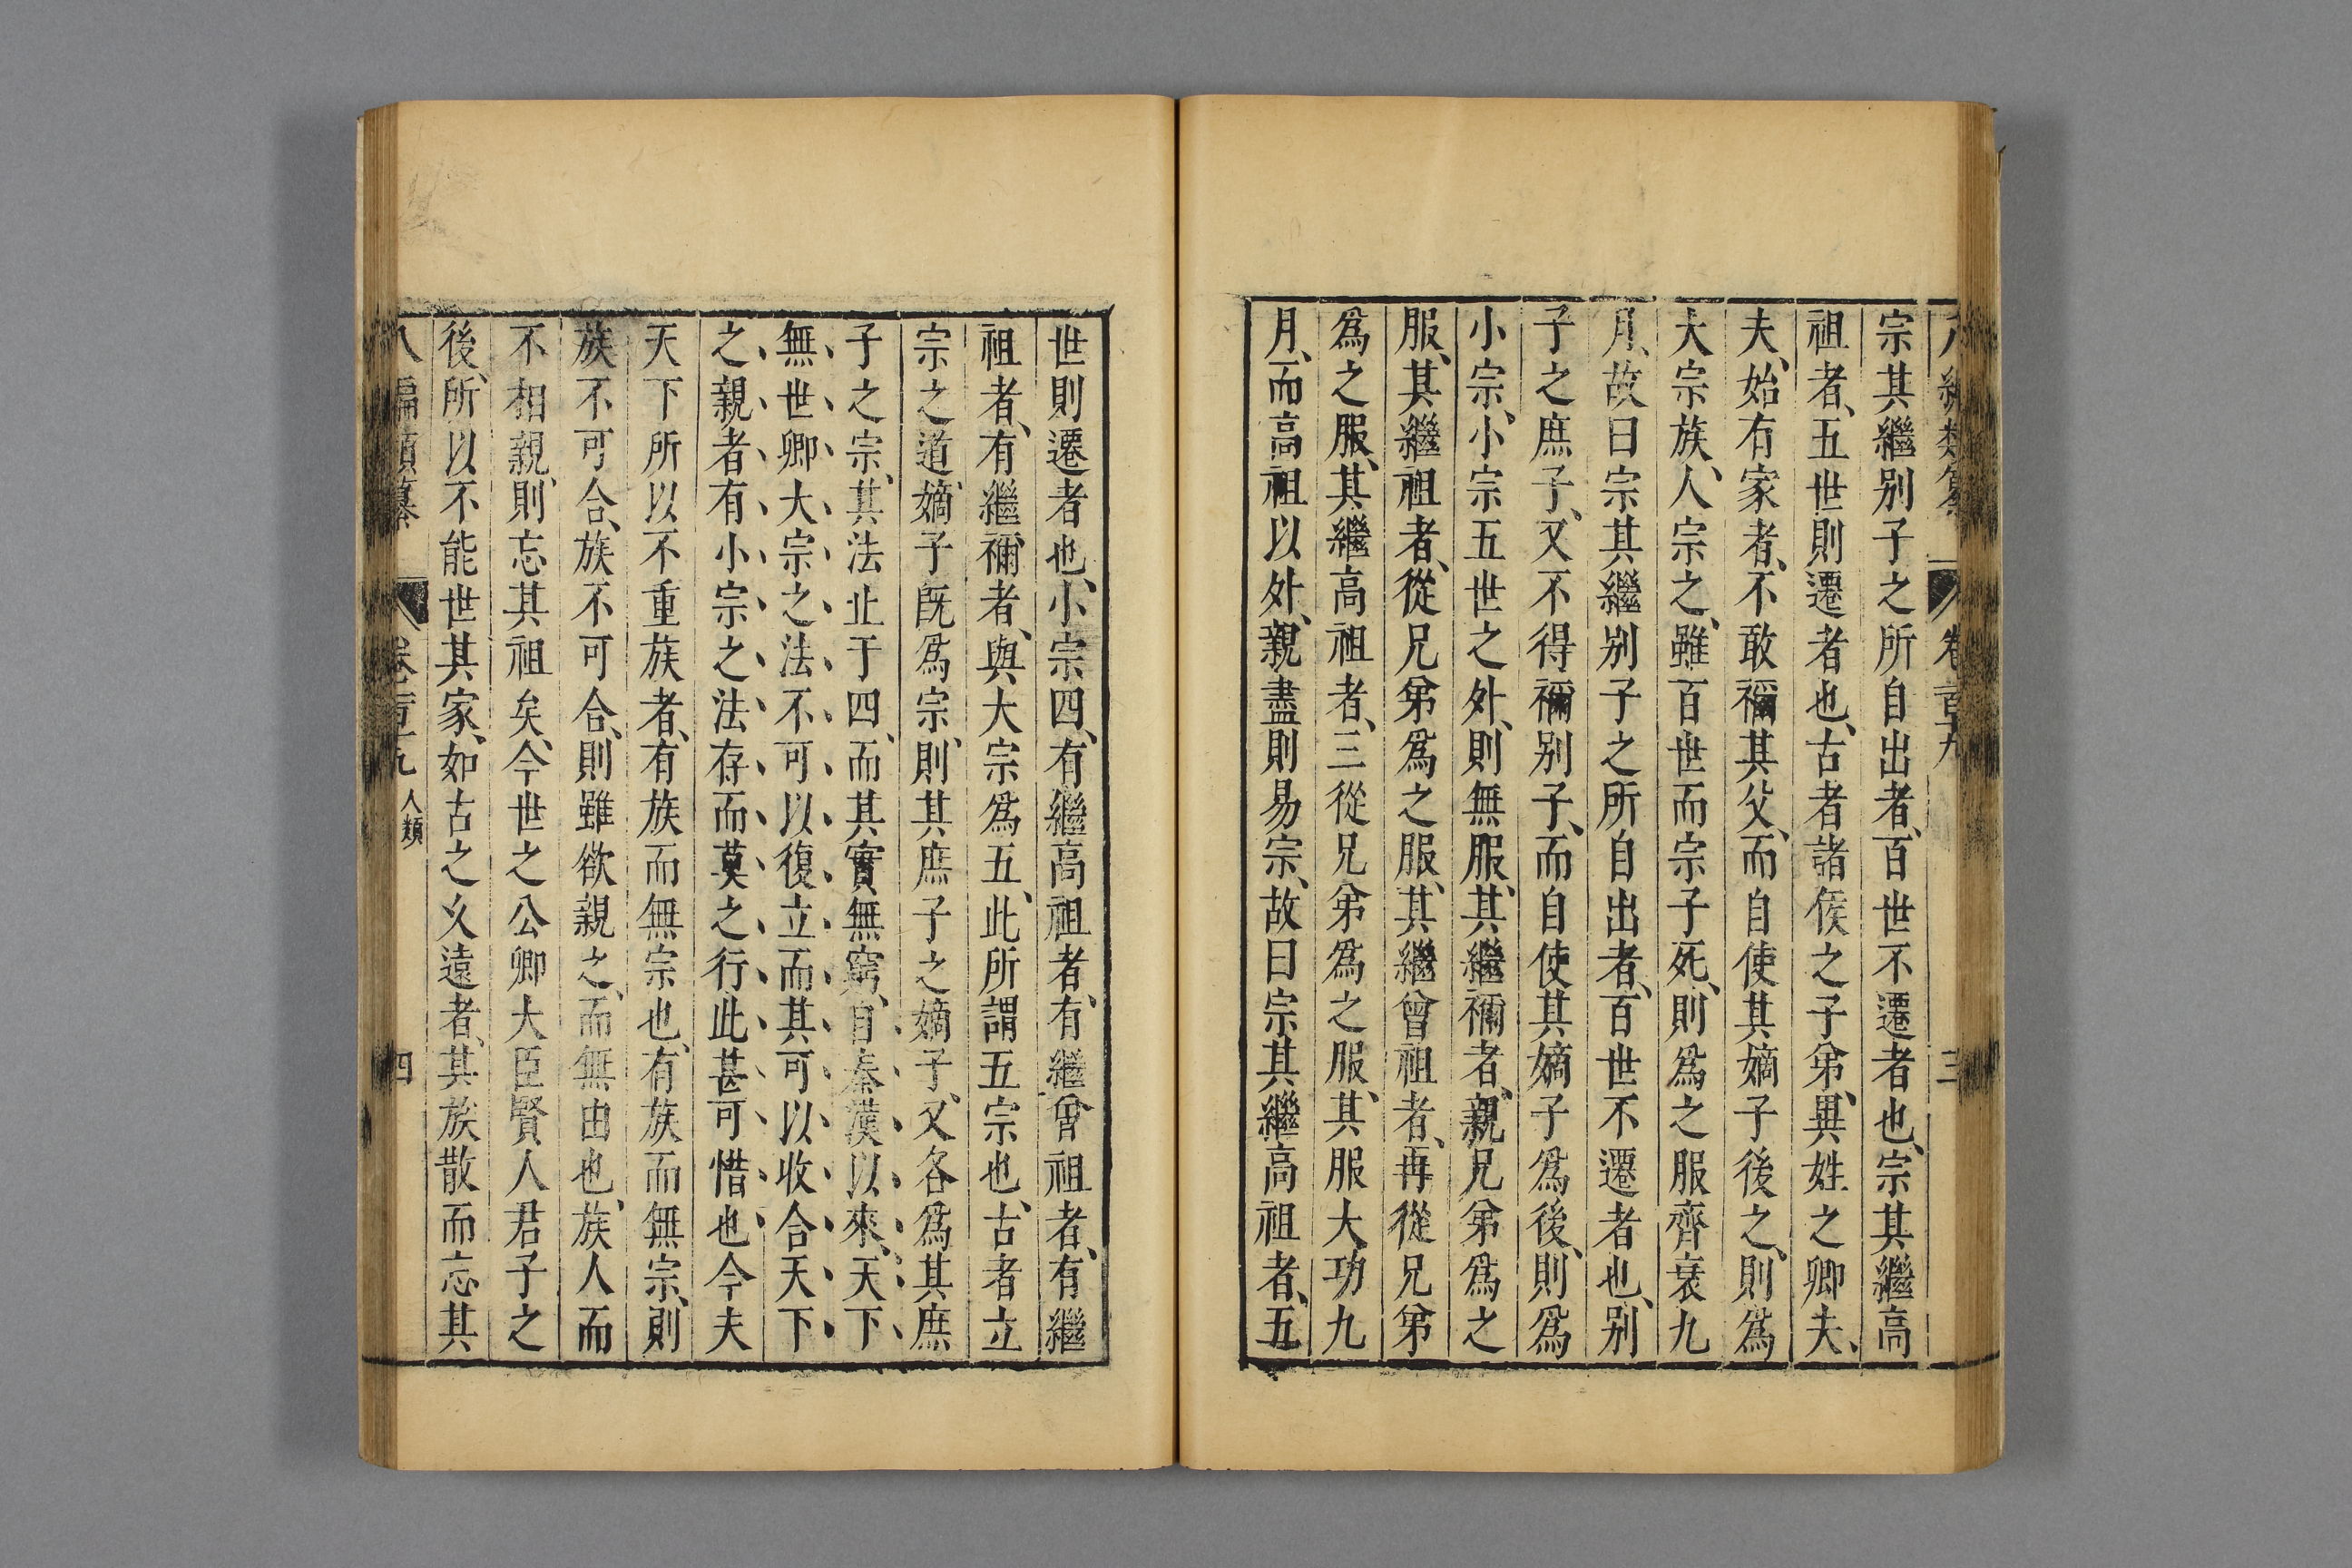 八編類纂 卷百九 三
宗其繼别子之所自出者、百世不遷者也、宗其繼高
祖者、五世則遷者也、古者諸侯之子弟、異姓之卿夫、
夫、始有家者、不敢禰其父、而自使其嫡子後之、則爲
大宗族、人宗之、雖百世而宗子死、則爲之服齊衰九
月、故曰宗其繼别子之所自出者、百世不遷者也、别
子之庶子、又不得禰别子、而自使其嫡子爲後、則爲
小宗、小宗五世之外、則無服、其繼禰者、親兄弟爲之
服、其繼祖者、從兄弟爲之服、其繼曾祖者、再從兄弟
爲之服、其繼高祖者、三從兄弟爲之服、其服大功九
月、而高祖以外、親盡則易宗、故曰宗其繼高祖者、五
世則遷者也、小宗四、有繼高祖者、有繼曾祖者、有繼
祖者、有繼禰者、與大宗爲五、此所謂五宗也、古者立
宗之道、嫡子旣爲宗、則其庶子之嫡子、又各爲其庶
子之宗、其法止于四、而其實無窮、自秦漢以來、天下
無世卿大宗之法不可以復立而其可以收合天下
之親者有小宗之法存而莫之行此甚可惜也今夫
天下所以不重族者、有族而無宗也、有族而無宗、則
族不可合、族不可合、則雖欲親之、而無由也、族人而
不相親、則忘其祖矣、今世之公卿大臣賢人君子之
後、所以不能世其家、如古之乆遠者、其族散而忘其
八編類纂 卷百九 人類 四